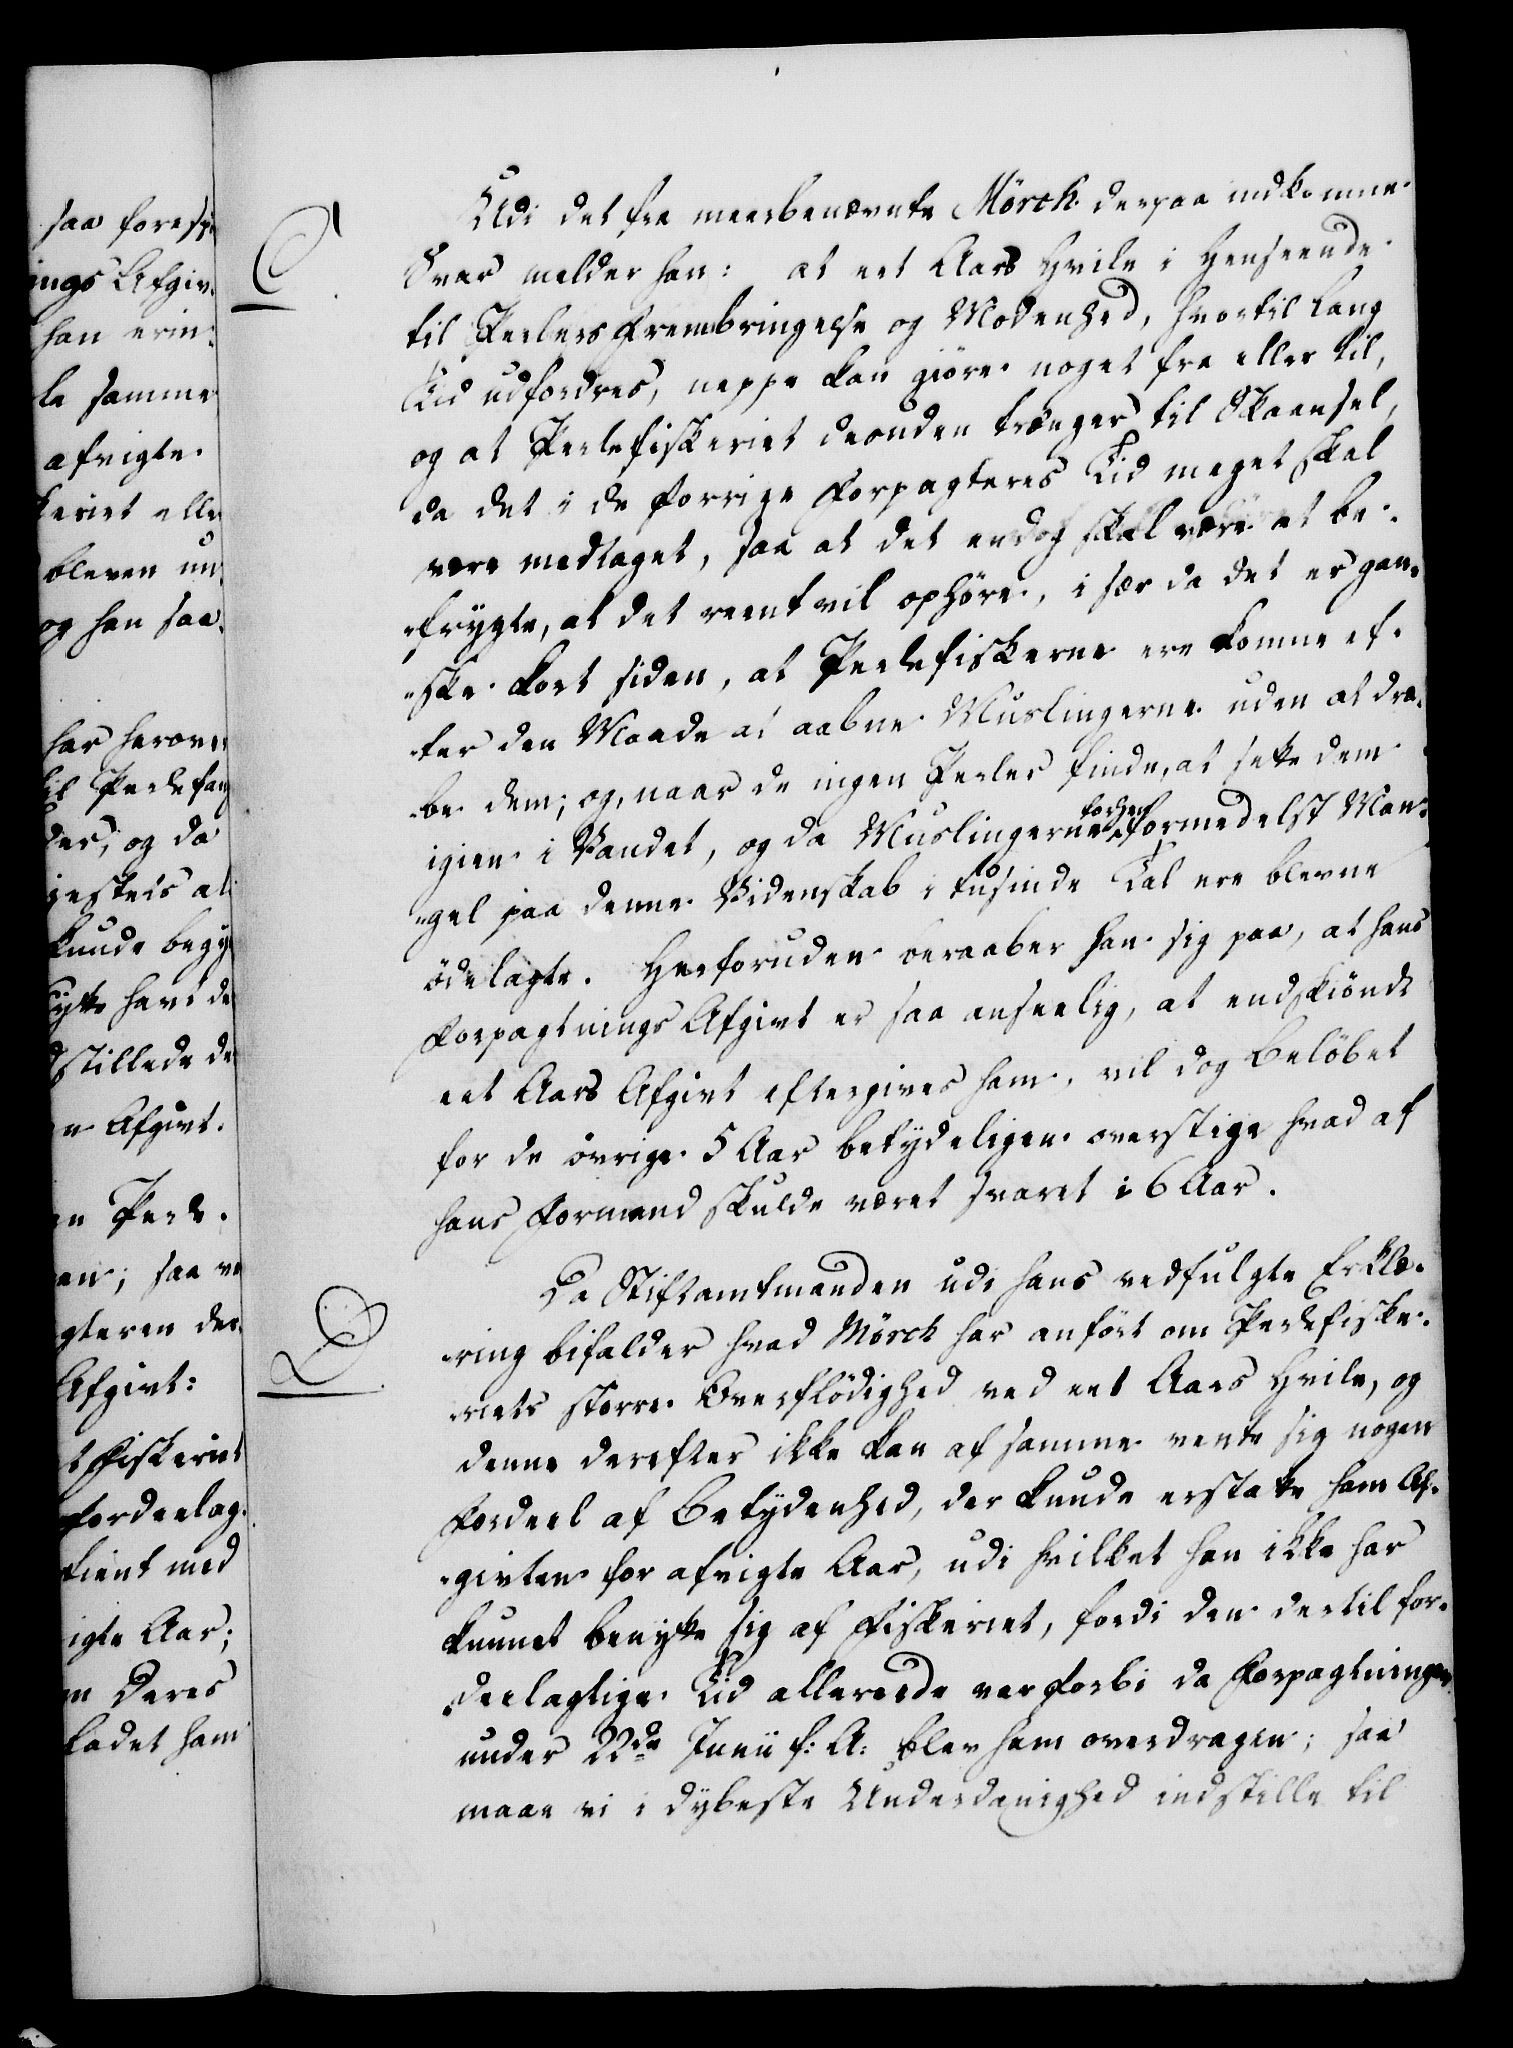 saa foresp.
ings Afgiv.
han erin:
le samme
afvigte
keriet elle
bleven un.
og han saa.
har herove
til Perlefang
der, og da
gesteds at
kunde begy
stykke havt de
dstillede de
n Afgivt.
n Perle.
en; saa ve
gteren der
Afgivt:
t Fiskeriet
fordeelag.
tient med
igte Aar;
m Deres
ladet ham
C
Udi det fra meerbenævnte Mörch derpaa indkomne
Svar melder han: at eet Aars Hvile i Henseende
til Perlers Frembringelse og Modenhed, hvortil lang
Tid udfordres, neppe kan giöre noget fra eller til,
og at Perlefiskeriet desuden trænger til Skaansel,
da det i de forrige Forpagteres Tid meget skal
være medtaget, saa at det endog skal være at be-
frygte, at det reent vil ophöre, i sær da det er gan-
ske kort siden, at Perlefiskerne ere komne ef-
ter den Maade at aabne Muslingerne uden at dræ-
be dem; og, naar de ingen Perler finde, at sette dem
igien i Vandet, og da Muslingerne forhen formedelst Man-
gel paa denne Videnskab i tusinde Tal ere blevne
ödelagte. Herforuden beraaber han sig paa, at hans
Forpagtnings Afgivt er saa anseelig, at endskiöndt
eet Aars Afgivt eftergives ham, vil dog Belöbet
for de övrige 5 Aar betydeligen overstige hvad af
hans Formand skulde været svaret i 6 Aar.
D
Da Stiftamtmanden udi hans vedfulgte Erklæ-
ring bifalder hvad Mörch har anfört om Perlefiske-
riets större Overflödighed ved eet Aars Hvile, og
denne derefter ikke kan af samme vente sig nogen
Fordeel af Betydenhed, der kunde erstatte ham Af-
givten for afvigte Aar, udi hvilket han ikke har
kunnet benytte sig af Fiskeriet, fordi den dertil for-
deelagtige Tid allereede var forbi da Forpagtningen
under 22de Junii f: A: blev ham overdragen; saa
maae vi i dybeste Underdanighed indstille til